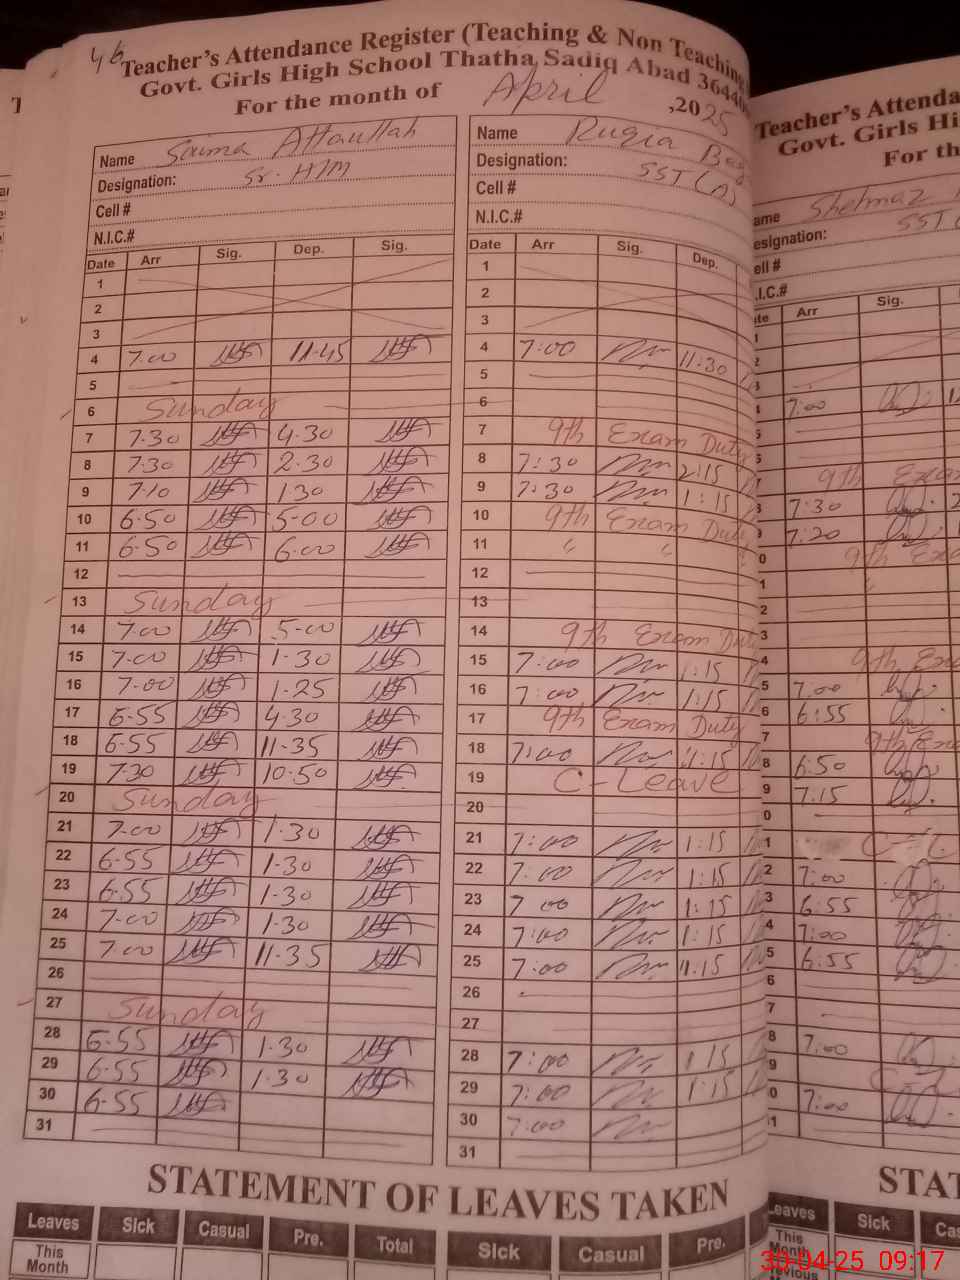 46
Teacher's Attendance Register (Teaching & Non Teaching
Govt. Girls High School Thatha Sadiq Abad 36440
For the month of April ,2025
Name Saima Attaullah
Designation: Sr. H/M
Cell #
N.I.C.#
Date Arr Sig. Dep. Sig.
1
2
3
4 7.00 11-45
5
6 Sunday
7 7.30 4.30
8 7.30 2.30
9 7.10 1.30
10 6.50 5-00
11 6.50 6.00
12
13 Sunday
14 7.00 5-00
15 7.00 1-30
16 7.00 1-25
17 6-55 4.30
18 6-55 11-35
19 7.30 10-50
20 Sunday
21 7.00 1.30
22 6-55 1-30
23 6-55 1-30
24 7-00 1-30
25 7.00 11-35
26
27 Sunday
28 6-55 1-30
29 6-55 1-30
30 6-55
31
Name Ruqia
Designation: SST (A)
Cell #
N.I.C.#
Date Arr Sig. Dep.
1
2
3
4 7:00 11:30
5
6
7 9th Exam Duty
8 7:30 2:15
9 7:30 1:15
10 9th Exam Duty
11 " "
12
13
14 9th Exam Duty
15 7:00 1:15
16 7:00 1:15
17 9th Exam Duty
18 7:00 11:15
19 C-Leave
20
21 7:00 1:15
22 7:00 1:15
23 7 00 1:15
24 7:00 1:15
25 7:00 11:15
26
27
28 7:00 1 15
29 7:00 1:15
30 7:00
31
STATEMENT OF LEAVES TAKEN
Leaves Sick Casual Pre. Total Sick Casual Pre.
This Month
Teacher's Attenda
Govt. Girls Hi
For th
ame Shehnaz
esignation: SST
ell #
.I.C.#
te Arr Sig.
7:00
9th Exam
7:30
7:20
9th Exa
9th Exa
7.00
6:55
9th Exa
6:50
7:15
7:00
6:55
7:00
6:55
7:00
7:00
STAT
Leaves Sick Cas
This Month
30-04-25 09:17